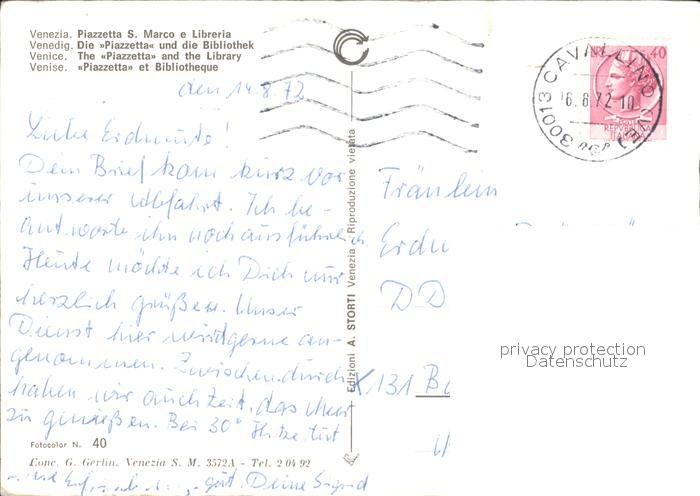 Venezia. Piazzetta S. Marco e Libreria
Venedig. Die »Piazzetta« und die Bibliothek
Venice. The «Piazzetta» and the Library
Venise. «Piazzetta» et Bibliotheque
den 14.8.72
Liebe Erdmute!
Dein Brief kam kurz vor
unserer Abfahrt. Ich be-
antworte ihn noch ausführlich
Heute möchte ich Dich nur
herzlich grüßen. Unser
Dienst hier wird gerne an-
genommen. Zwischendurch
haben wir auch Zeit, das Meer
zu genießen. Bei 30° Hitze tut
gut. Deine Sigrid
Fotocolor N. 40
Conc. G. Gerlin. Venezia S. M. 3572A - Tel. 2 04 92
Edizioni A. STORTI Venezia - Riproduzione vietata
30013 CAVALLINO (VE)
16.8.72.10
40
REPUBBLICA
Fräulein
Erdm
DD
X131 Ba
privacy protection
Datenschutz